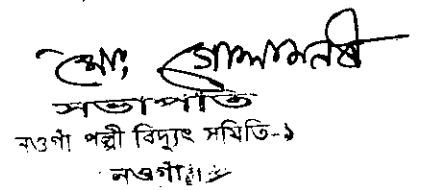 মোঃ গোলামনবী
সভাপতি
নওগাঁ পল্লী বিদ্যুৎ সমিতি-১
নওগাঁ।